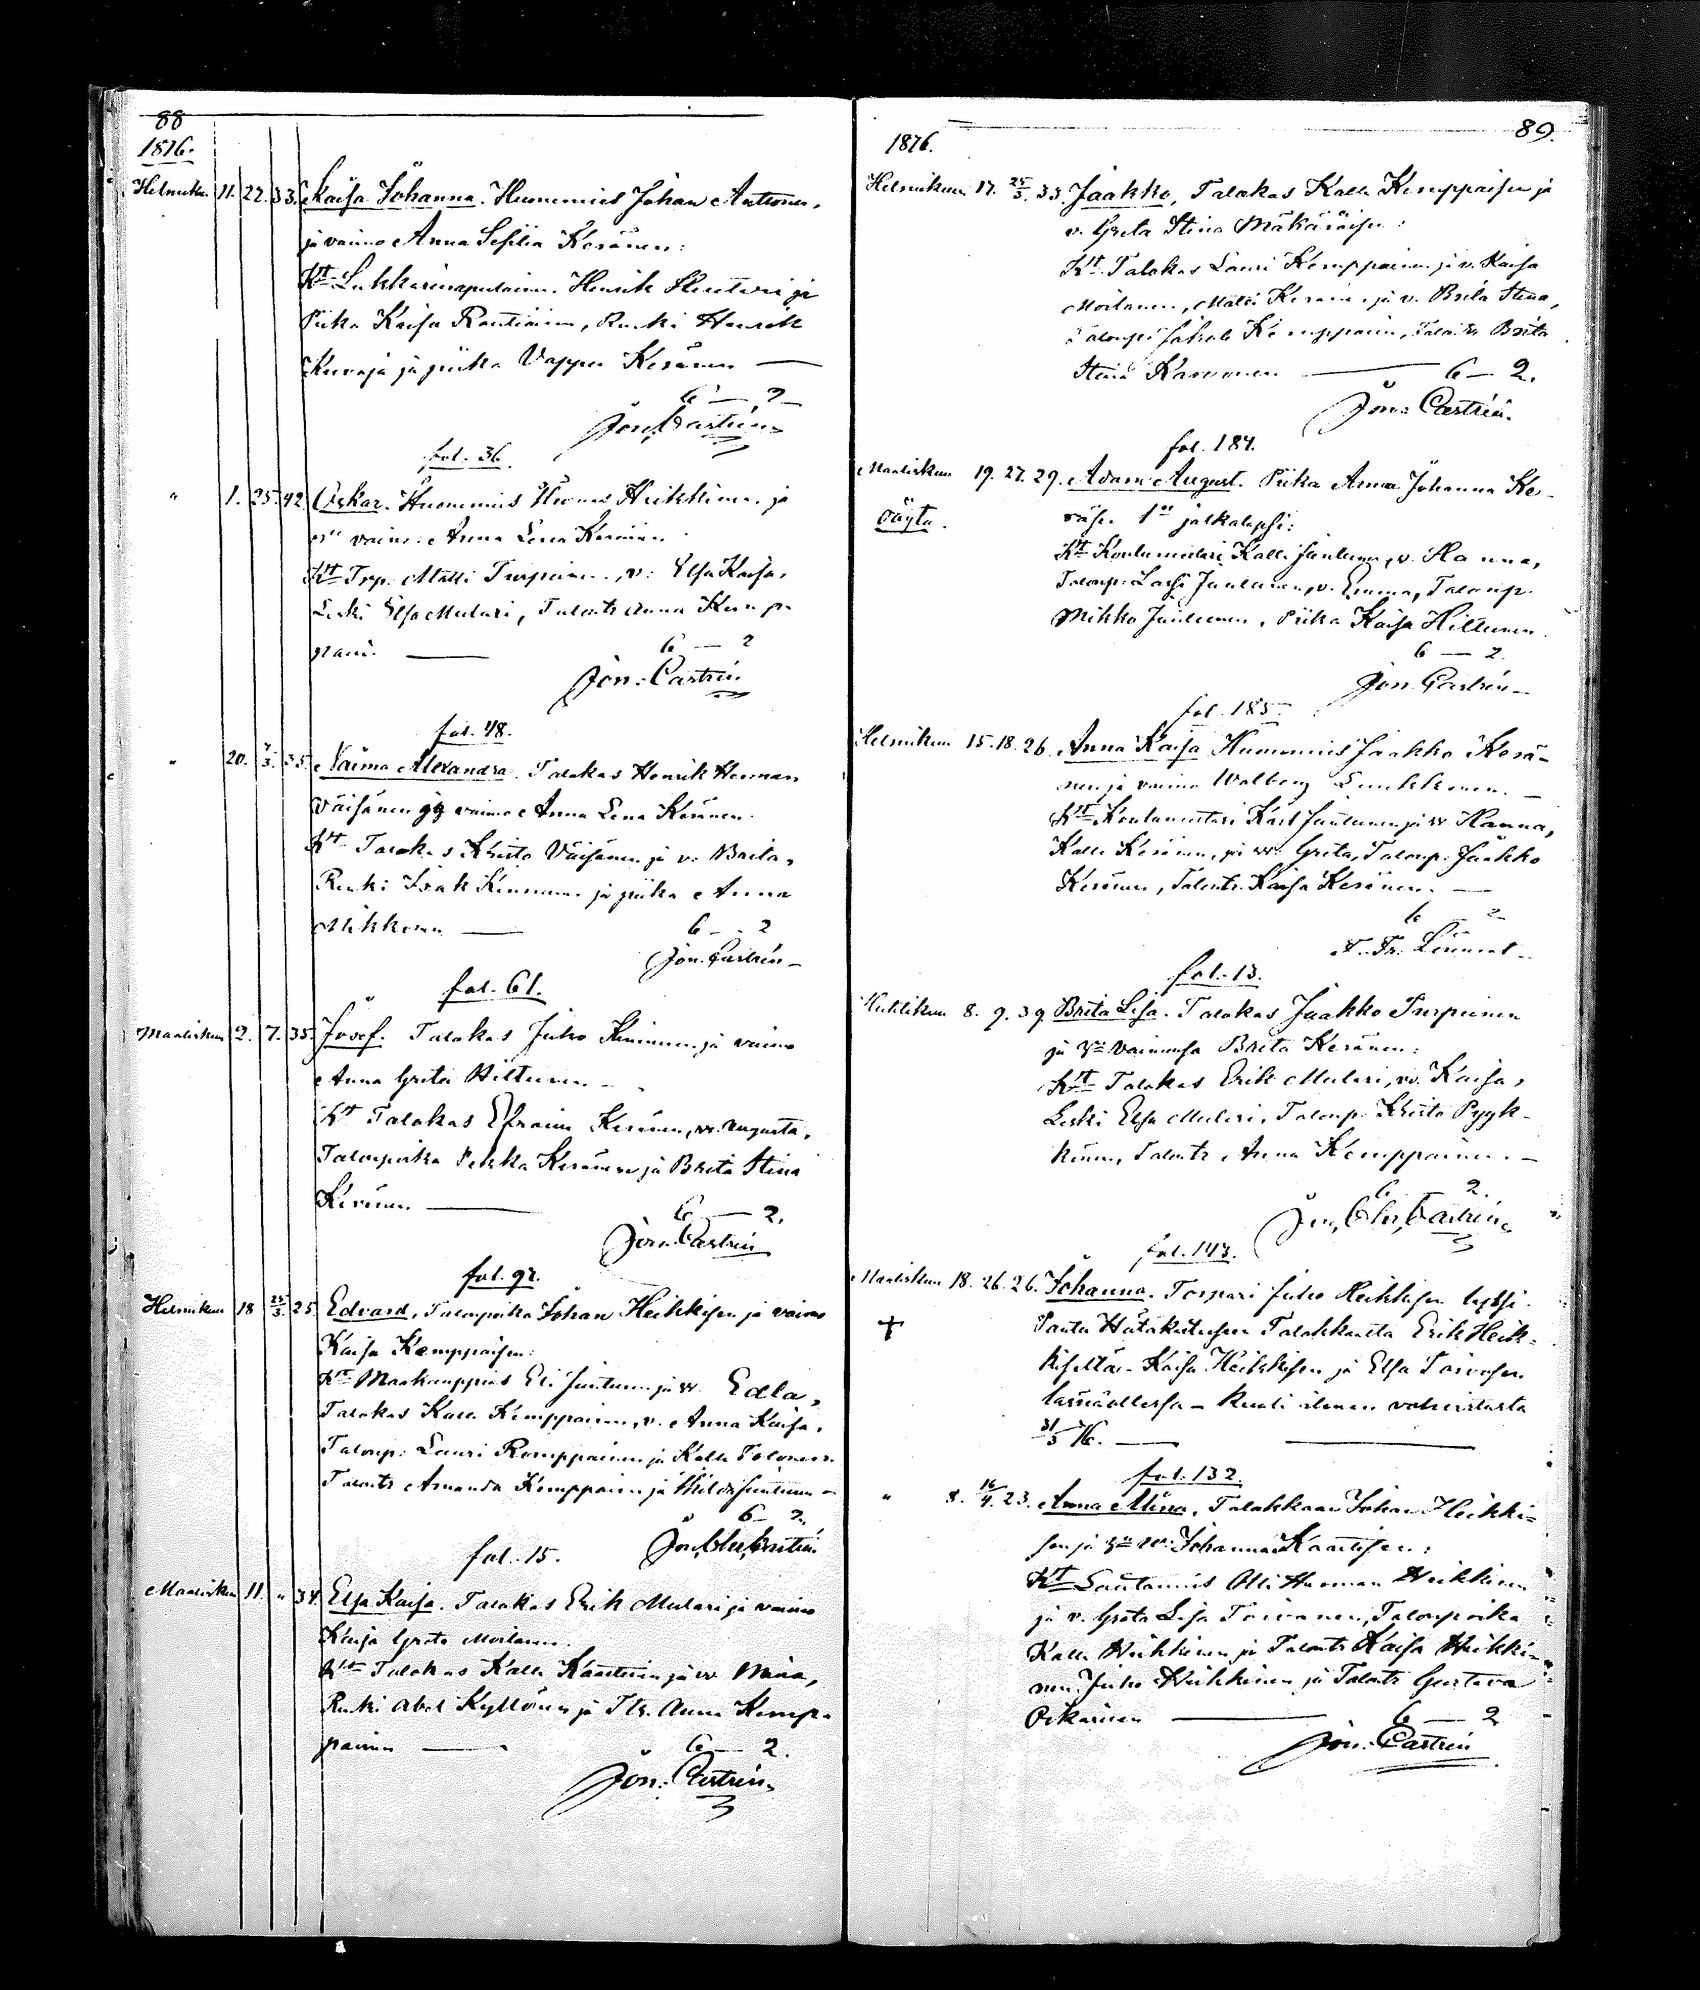 88
1876.
Helmikuu 11. 22. 33. Kaisa Johanna. Huonemies Johan Antonen,
ja vaimo Anna Sesilia Keränen:
Kt Lukkarinapulainen Henrik
Piika Kaisa Rautiainen, Renki Henrik
Kuvaja ja piika Vappu Keränen —
6 — 2
Joh. Castrén
fol. 36.
" 1. 25. 42 Oskar. Huonemies Heikkinen ja
vaimo Anna Lena Keränen
Kt Trp. Matti Turpeinen, v: Elsa Kaisa,
Leski Elsa Mulari, Talontr Anna Kemp-
painen —
6 — 2
Jon: Castrén
fol. 48.
" 20. 7/3. 35. Naima Alexandra. Talokas Henrik Herman
Väisänen ja vaimo Anna Lena Keränen.
Kt Talokas Kristo Väisänen ja v: Brita,
Renki Isak Kinnunen ja piika Anna
Mikkonen —
6 — 2
Jon. Castrén
fol. 61.
Maaliskuu 2. 7. 35. Josef. Talokas Juho Keränen ja vaimo
Anna Greta Hiltunen
Kt Talokas Efraim Keränen, v. Augusta,
Talonpoika Pekka Keränen ja Brita Stina
Keränen —
6 — 2.
Jon. Castrén
fol. 92.
Helmikuu 18 25/3. 25. Edvard, Talonpoika Johan Heikkisen ja vaimo
Kaisa Kemppaisen:
Kt Maakauppias Eli Juntunen ja v. Edla,
Talokas Kalle Kemppainen, v. Anna Kaisa,
Talonp: Lauri Romppainen ja Kalle Tolonen
Talontr Amanda Kemppainen ja Hilda Juntunen
6 — 2.
Jon. Chr. Castrén
fol. 15.
Maaliskuu 11. " 34. Elsa Kaisa. Talokas Erik Mulari ja vaimo
Kaisa Greta Moilanen.
Kt Talokas Kalle Kaartinen ja v. Miina,
Renki Abel Kyllönen ja Ttr. Anna Kemp-
painen —
6 — 2.
Jon. Castrén
89.
1876.
Helmikuu 17. 25/3. 33. Jaakko, Talokas Kalle Kemppaisen ja
v. Greta Stina Mäkäräisen:
Kt. Talokas Lauri Kemppainen ja v. Kaisa
Moilanen, Matti Keränen ja v. Brita Stina,
Talonp: Jakob Kemppainen, Talontr Brita
Stina Karvonen — 6 — 2.
Jon: Castrén.
fol. 184.
Maaliskuu 19. 27. 29. Adam August. Piika Anna Johanna Ke-
räsen 1n jalkalapsi:
Äpyta.
Kt Koulumestari Kalle Juntunen, v. Hanna,
Talonp. Lassi Juntunen, v. Emma, Talonp.
Mikko Juntunen, Piika Kaisa Hiltunen.
6 — 2.
Jon Castrén
fol. 185
Helmikuu 15. 18. 26. Anna Kaisa Huonemies Jaakko Kerä-
nen ja vaimo Walborg Lunkkonen. —
Kt Koulumestari Karl Juntunen ja v. Hanna,
Kalle Keränen, ja v: Greta, Talonp. Jaakko
Keränen, Talontr. Kaisa Keränen. —
6 2
fol. 13.
Huhtikuu 8. 9. 39. Brita Lisa. Talokas Jaakko Turpeinen
ja vaimonsa Brita Keränen:
Kt Talokas Erik Mulari, v. Kaisa,
Leski Elsa Mulari, Talonp. Kristo Pyyk-
könen, Talontr Anna Kemppainen. —
6 2.
Jon, Chr, Castrén
fol. 143.
Maaliskuu 18. 26. 26. Johanna. Torpari Juho Heikkisen lapsi.
+ Saatu Hätäkasteen Talokkaalta Erik Heik-
kiseltä. Kaisa Heikkisen ja Elsa Toivosen
läsnäollessa — kuoli ilman vahvistusta
31/3 76. —
fol. 132.
" 8. 16/4. 23. Anna Miina, Talokkaan Johan Heikki-
sen ja v: Johanna Kaartisen:
Kt Lautamies Olli Herman Heikkinen
ja v. Greta Lisa Toivanen, Talonpoika
Kalle Heikkinen ja Talontr Kaisa Heikki-
nen. Juho Heikkinen ja Talontr Gustava
Pikarinen — 6 — 2
Jon. Castrén